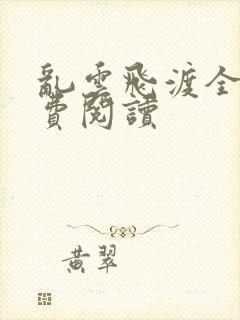 亂雲飛渡全
費閱讀
黃翠